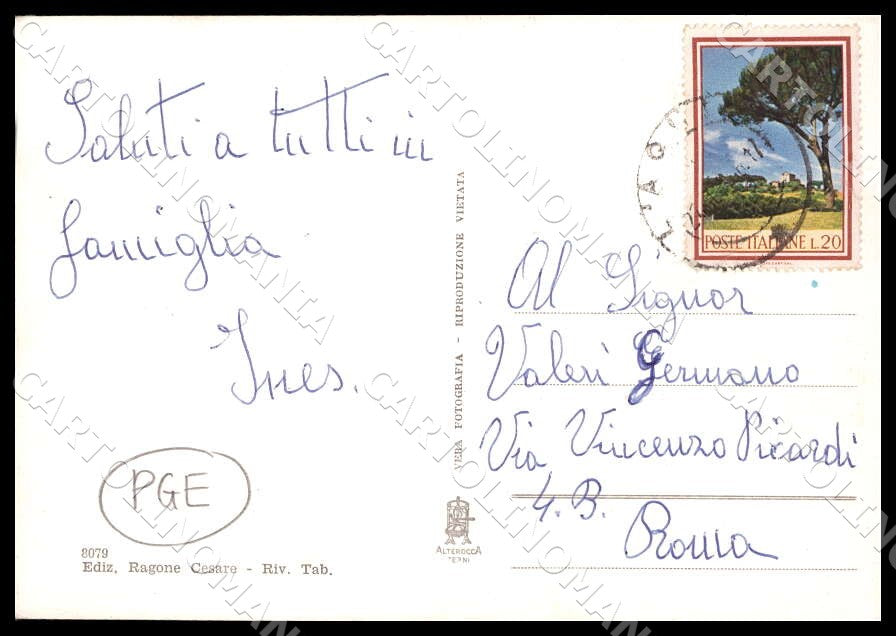 Saluti a tutti in
famiglia
Ines.
PGE
8079
Ediz. Ragone Cesare - Riv. Tab.
VERA FOTOGRAFIA - RIPRODUZIONE VIETATA
ALTEROCCA
TERNI
POSTE ITALIANE L.20
Al Signor
Valeri Germano
Via Vincenzo Picardi
4. B.
Roma
CARTOLINOMANIA